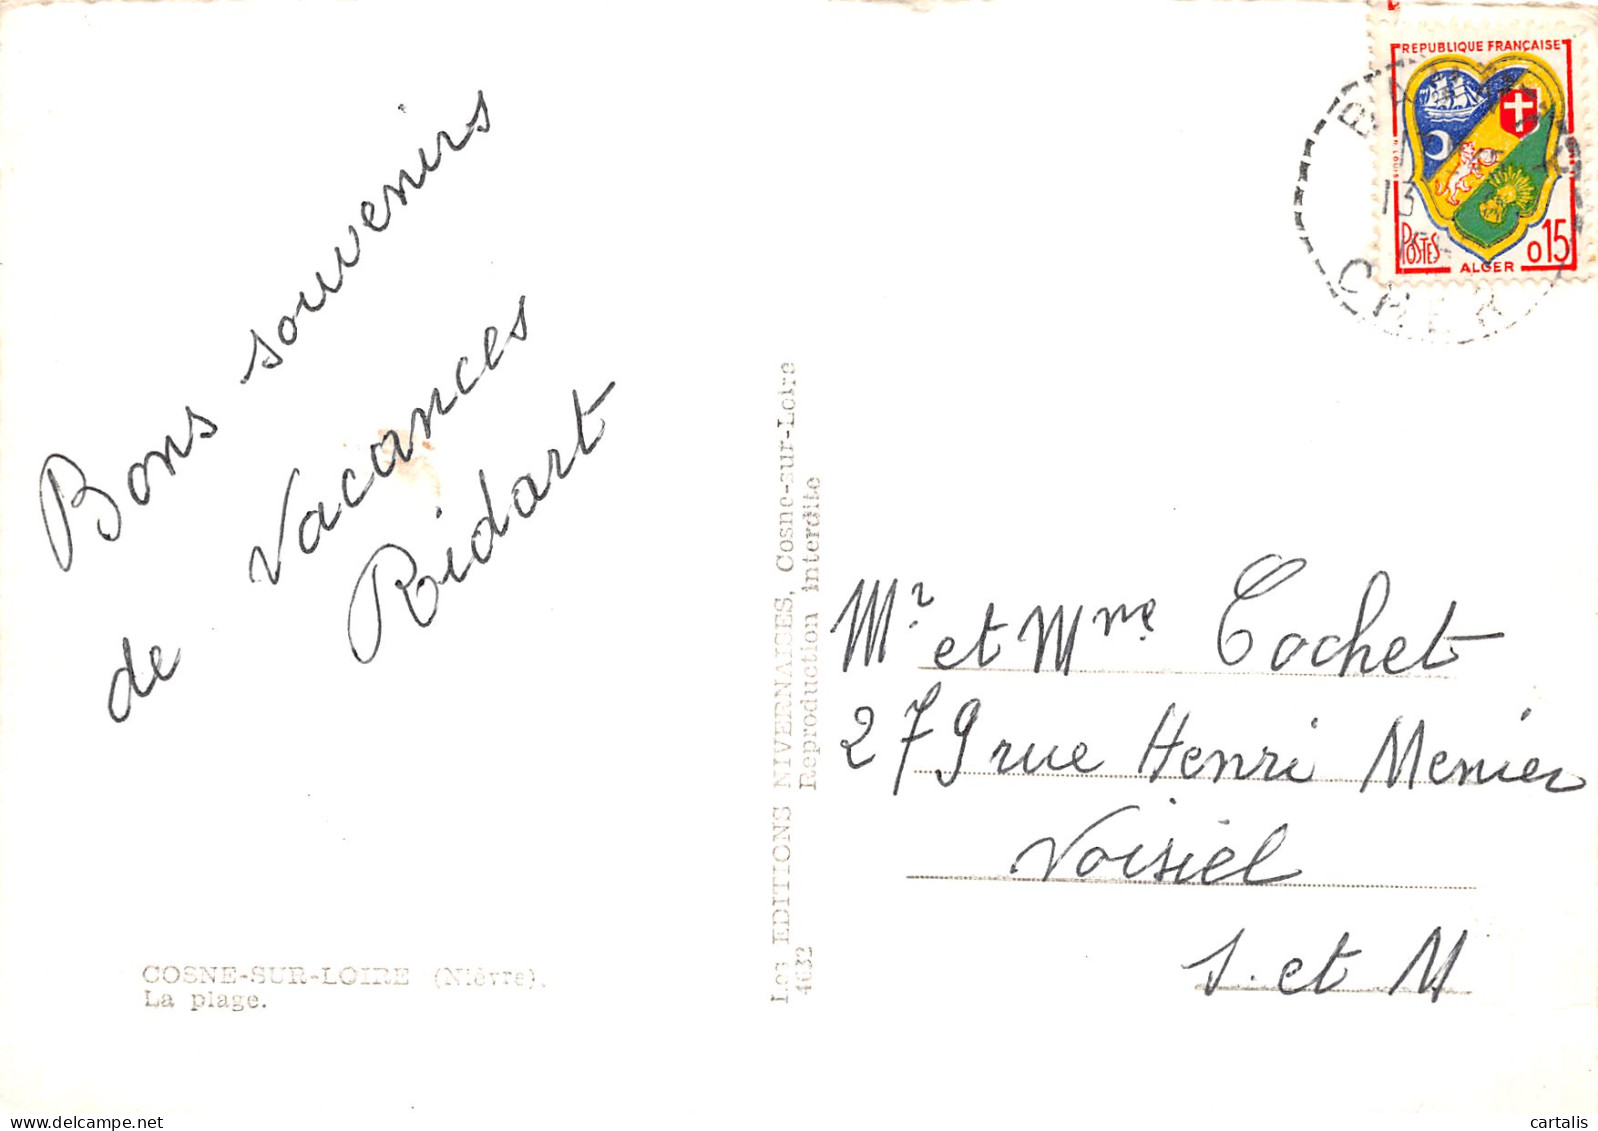 Bons souvenirs
de Vacances
Ridart
COSNE-SUR-LOIRE (Nièvre).
La plage.
Les EDITIONS NIVERNAISES, Cosne-sur-Loire
Reproduction interdite
4632
REPUBLIQUE FRANÇAISE
POSTES
ALGER
0,15
13
CHER
Mr et Mme Cochet
279 rue Henri Menier
Noisiel
S. et M
cartalis